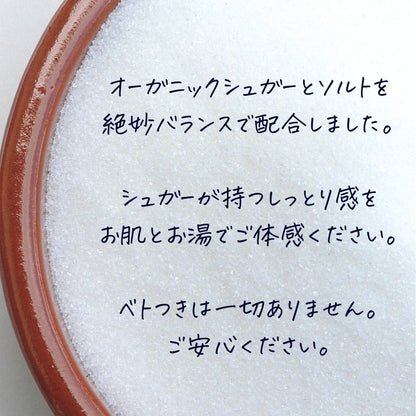 オーガニックシュガーとソルトを
絶妙バランスで配合しました。
シュガーが持つしっとり感を
お肌とお湯でご体感ください。
ベトつきは一切ありません。
ご安心ください。